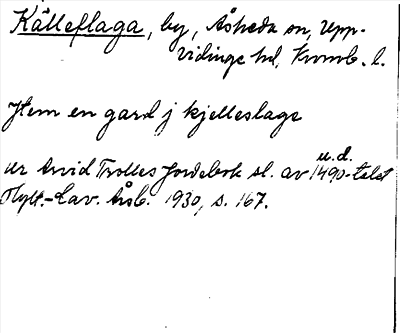 Källeflaga, by, Åsheda sn, Upp-
vidinge hd, Kronob. l.
Hem en gard j kjelleslage
u.d.
ur Arvid Trolles Jordebok sl. av 1490-talet
Hylt.-Cav. Årsb. 1930, s. 167.